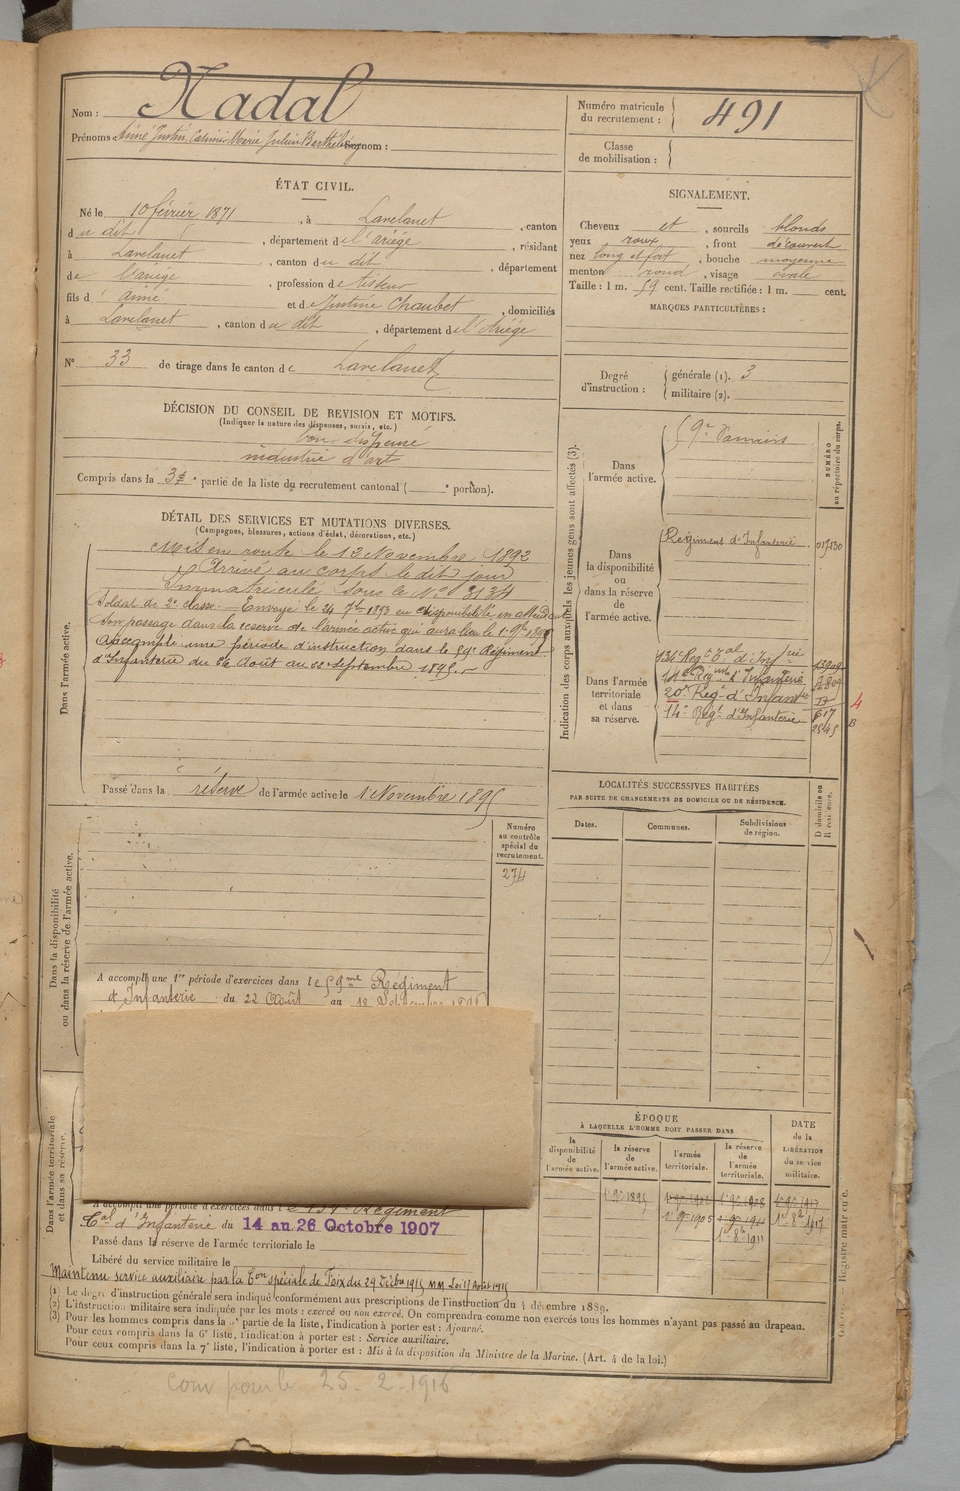 Nom : Nadal
Prénoms : Aimé Justin, Casimir Marie Julien Barthélémy Surnom :
Numéro matricule du recrutement : 491
Classe de mobilisation :
ÉTAT CIVIL.
Né le 10 février 1871, à Lavelanet, canton
du dit, département de l'ariége, résidant
à Lavelanet, canton du dit, département
de l'ariége, profession de tisseur
fils d' aimé et de Justine Chaubet, domiciliés
à Lavelanet, canton du dit, département de l'Ariége
N° 33 de tirage dans le canton de Lavelanet
SIGNALEMENT.
Cheveux et, sourcils blonds
yeux roux, front découvert
nez long et fort, bouche moyenne
menton rond, visage ovale
Taille : 1 m. 59 cent. Taille rectifiée : 1 m. cent.
MARQUES PARTICULIÈRES :
Degré d'instruction : générale (1). 3
militaire (2).
DÉCISION DU CONSEIL DE REVISION ET MOTIFS.
(Indiquer la nature des dispenses, sursis, etc.)
bon dispensé
industrie d'art
Compris dans la 3e partie de la liste du recrutement cantonal ( e portion).
DÉTAIL DES SERVICES ET MUTATIONS DIVERSES.
(Campagnes, blessures, actions d'éclat, décorations, etc.)
Dans l'armée active.
Mis en route le 12 Novembre 1892
Arrivé au corps le dit jour
Immatriculé sous le No 3134
Soldat de 2e classe. Envoyé le 24 7bre 1893 en disponibilité en attendant
son passage dans la reserve de l'armée active qui aura lieu le 1er 9bre 1895
Aaccompli une période d'instruction dans le 59e Régiment
d'Infanterie du 26 Août au 22 septembre 1895.
Passé dans la réserve de l'armée active le 1 Novembre 1895
Indication des corps auxquels les jeunes gens sont affectés (3).
NUMÉRO au répertoire du corps.
Dans l'armée active.
Dans la disponibilité ou dans la réserve de l'armée active.
Régiment d'Infanterie
Dans l'armée territoriale et dans sa réserve.
134e Regt Tal d'Infrie
20e Regt d'Infanterie
14e Régt d'Infanterie
617
2545
4
B
LOCALITÉS SUCCESSIVES HABITÉES
PAR SUITE DE CHANGEMENTS DE DOMICILE OU DE RÉSIDENCE.
Dates. Communes. Subdivisions de région.
D domicile ou R résidence.
Numéro au contrôle spécial du recrutement.
274
Dans la disponibilité ou dans la réserve de l'armée active.
A accompli une 1re période d'exercices dans le 59me Régiment
d'Infanterie du 22 Août au 18 Septembre
Dans l'armée territoriale et dans sa réserve.
A accompli une période d'exercices dans le 134e Régiment
Tal d'Infanterie du 14 au 26 Octobre 1907
Passé dans la réserve de l'armée territoriale le
Libéré du service militaire le
Maintenu service auxiliaire par la Con spéciale de Foix du 29 Décbre 1915 Loi 17 Août 1915
ÉPOQUE
À LAQUELLE L'HOMME DOIT PASSER DANS
la disponibilité de l'armée active. la réserve de l'armée active. l'armée territoriale. la réserve de l'armée territoriale.
DATE de la LIBÉRATION du service militaire.
1er 9bre 1895 1er 9bre 1908 1er 9bre 1917
1er 9bre 1905 1er 9bre 1911 1er 8bre 1917
1er 8bre 1911
(1) Le degré d'instruction générale sera indiqué conformément aux prescriptions de l'instruction du 4 décembre 1889.
(2) L'instruction militaire sera indiquée par les mots : exercé ou non exercé. On comprendra comme non exercés tous les hommes n'ayant pas passé au drapeau.
(3) Pour les hommes compris dans la 5e partie de la liste, l'indication à porter est : Ajourné.
Pour ceux compris dans la 6e liste, l'indication à porter est : Service auxiliaire.
Pour ceux compris dans la 7e liste, l'indication à porter est : Mis à la disposition du Ministre de la Marine. (Art. 4 de la loi.)
25. 2 1916